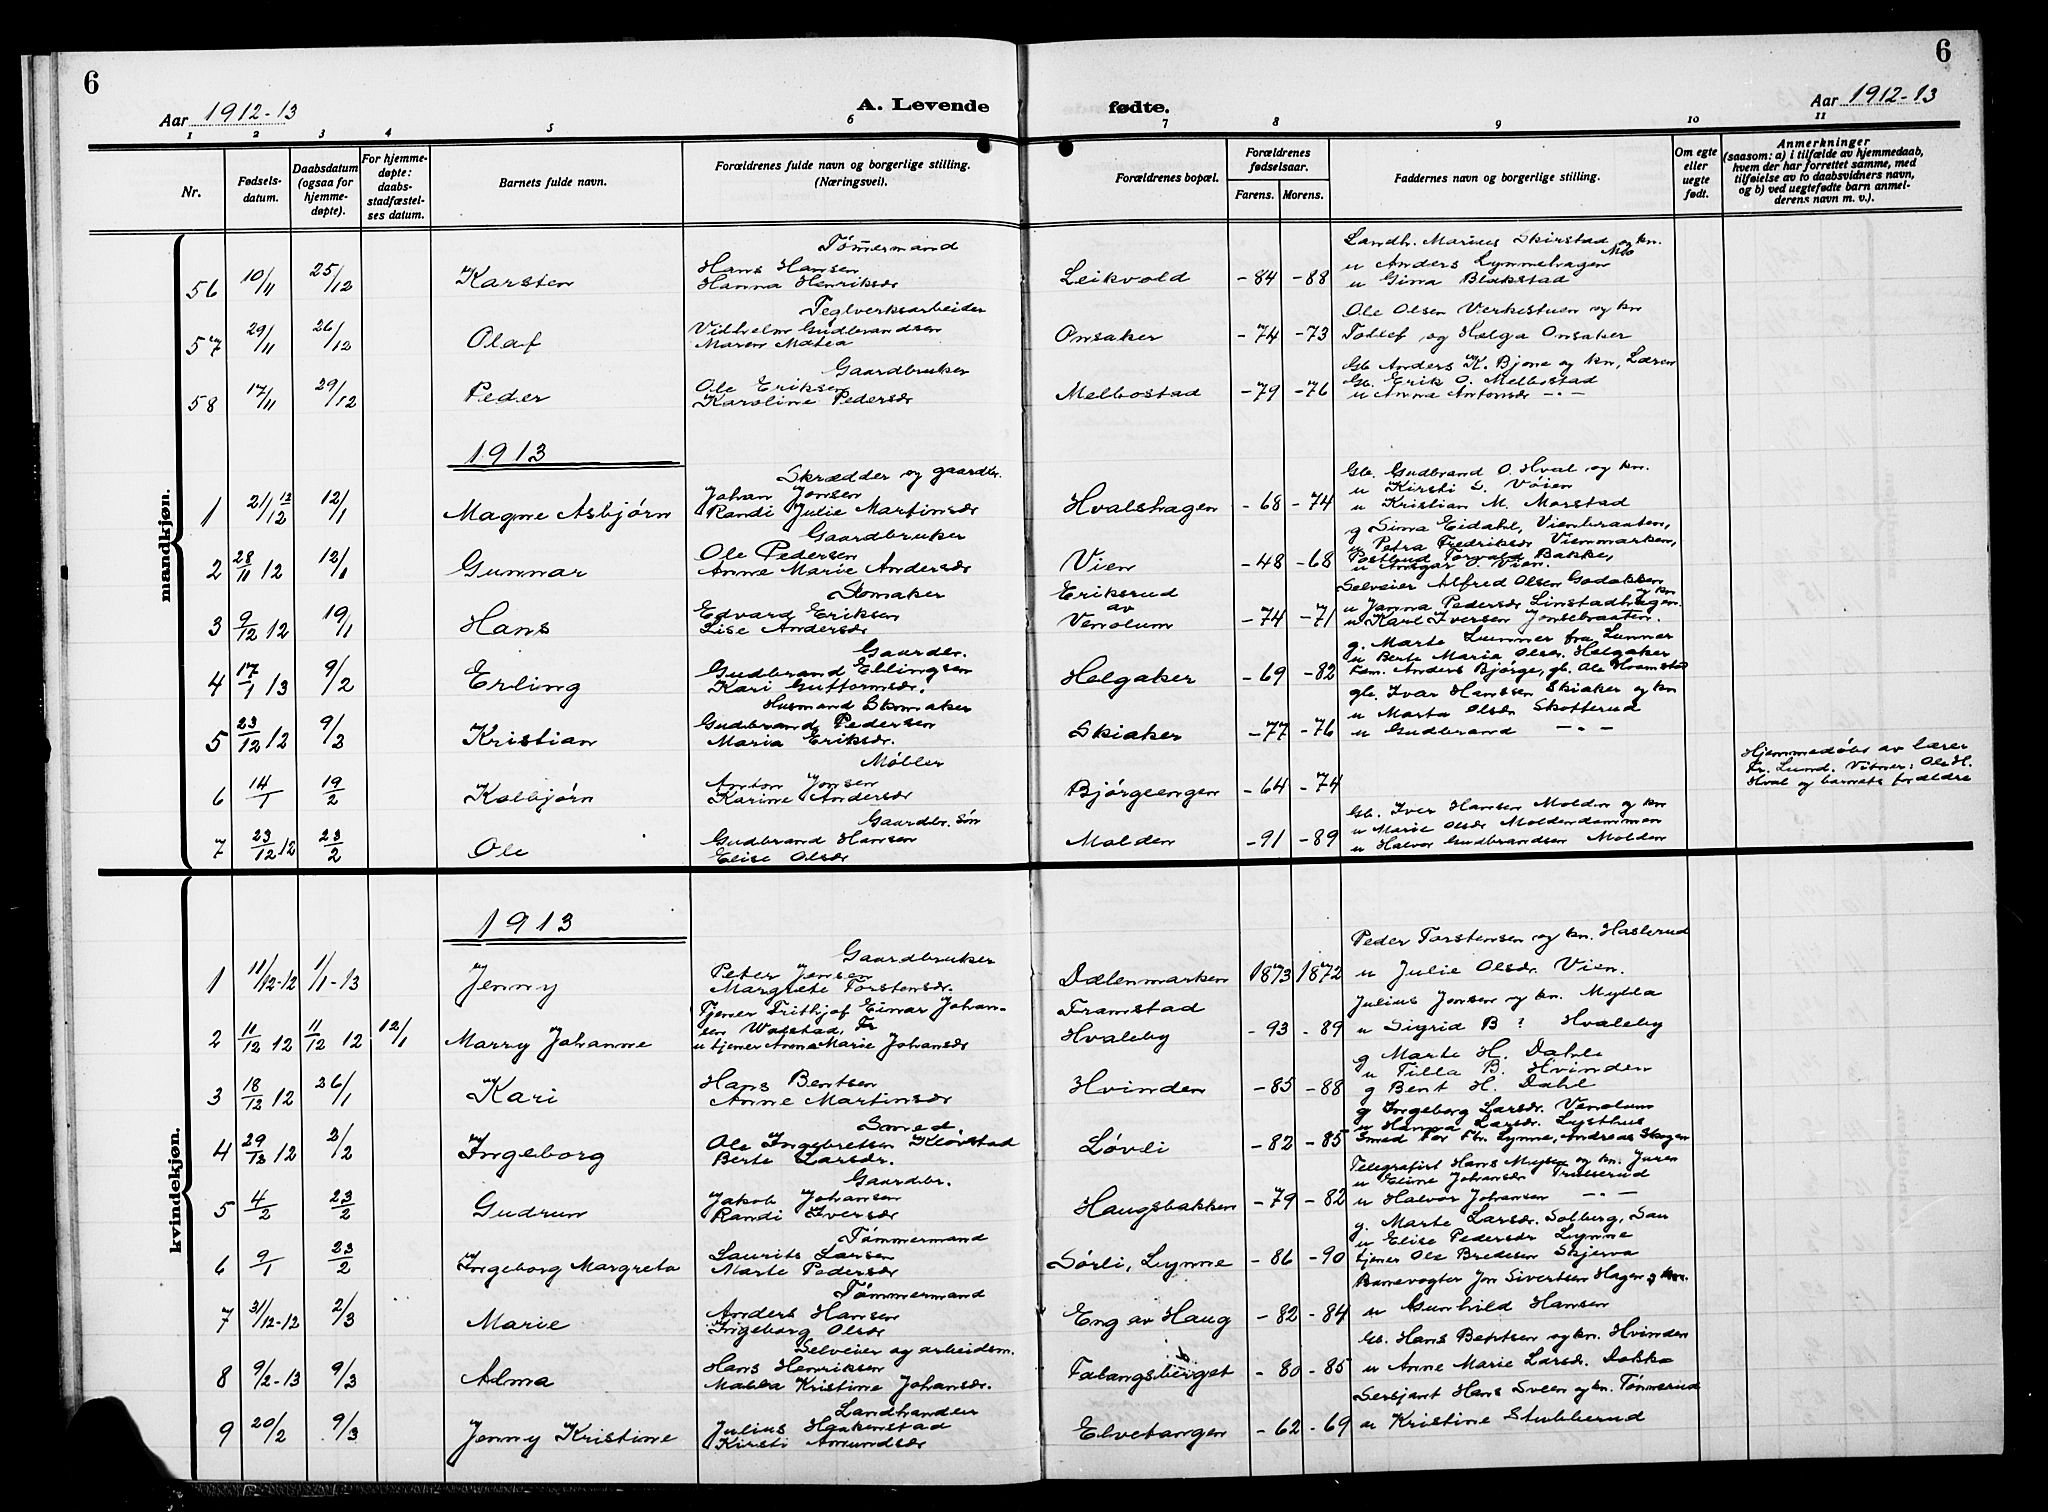 6
6
Aar 1912-13
A. Levende fødte.
Aar 1912-13
1 2 3 4 5 6 7 8 9 10 11
Nr.
Fødselsdatum.
Daabsdatum (ogsaa for hjemmedøpte).
For hjemmedøpte: daabsstadfæstelses datum.
Barnets fulde navn.
Forældrenes fulde navn og borgerlige stilling. (Næringsvei).
Forældrenes bopæl.
Forældrenes fødselsaar.
Farens. Morens.
Faddernes navn og borgerlige stilling.
Om egte eller uegte født.
Anmerkninger (saasom: a) i tilfælde av hjemmedaab, hvem der har forrettet samme, med tilføielse av to daabsvidners navn, og b) ved uegtefødte barn anmelderens navn m. v.).
mandkjøn.
56 10/11 25/12 Karsten
Tømmermand
Hans Hansen
Hanna Henriksdr
Leikvold -84 -88
Landh. Marius Skirstad og kn.
u Anders Lynnehagen
u Gina Blakstad
57 29/11 26/12 Olaf
Teglverksarbeider
Vilhelm Gudbrandsen
Maren Matea
Onsaker -74 -73
Ole Olsen Verkestuen og kn
Tollef og Helga Onsaker
58 17/11 29/12 Peder
Gaardbruker
Ole Eriksen
Karoline Pedersdr
Melbostad -79 -76
Gb Anders K. Bjone og kn, Læren
Gb. Erik O. Melbostad
u Anna Antonsdr -"-
1913
1 21/12 12 12/1 Magne Asbjørn
Skrædder og gaardbr.
Johan Jonsen
Randi Julie Martinsdr
Hvalshagen -68 -74
Gb. Gudbrand O. Hval og kn.
u Kirsti S. Vøien
u Kristian M. Morstad
2 28/11 12 12/1 Gunnar
Gaardbruker
Ole Pedersen
Anne Marie Andersdr
Vien -48 -68
g Sina Eidahl, Vienbraaten,
u Petra Fredriksdr Vienmarken,
Postbud Torvald Bakke,
u Ansgar O. Vien.
3 9/12 12 19/1 Hans
Skomaker
Edvard Eriksen
Lise Andersdr
Eriksrud
av
Venolum -74 -71
Selveier Alfred Olsen Godakken og kn
u Janna Pedersdr Linstadhagen
u Karl Iversen Jonsebraaten.
4 17/1 13 9/2 Erling
Gaardbr.
Gudbrand Ellingsen
Kari Guttormsdr.
Helgaker -69 -82
g. Marte Lunner fra Lunner
u Berte Maria Olsdr. Helgaker
Fan. Anders Bjørge, gb. Ole Hvamstad
5 23/12 12 9/2 Kristian
Husmand Skomaker
Gudbrand Pedersen
Maria Eriksdr.
Skiaker -77 -76
gb. Ivar Hanssen Skiaker og kn
u Marta Olsdr Skotterud
u Gudbrand -"-
6 14/1 19/2 Kolbjørn
Møller
Anton Jonsen
Karine Andersdr
Bjørgeengen -64 -74
Hjemmedøbt av lærer
Fr. Lund. Vitner: Ole H.
Hval og barnets forældre
7 23/12 12 23/2 Ole
Gaardbr. søn
Gudbrand Hansen
Elise Olsdr
Molden -91 -89
Gb. Iver Hansen Molden og kn
u Marie Olsdr Moldendammen
u Halvor Gudbrandsen Molden
kvindekjøn.
1913
1 11/12-12 1/1-13 Jenny
Gaardbruker
Peter Jensen
Margrete Torstensdr.
Dælenmarken 1873 1872
Peder Torstensen og kn. Haslerud
u Julie Olsdr. Vien.
2 11/12 12 11/12 12 12/1 Marry Johanne
Tjener Frithjof Einar Johansen
Wolstad, Fr
u tjener Anna Marie Johansdr
Framstad
Hvaleby -93 -89
Julius Jonsen og kn. Mylla
u Sigrid B ? Hvaleby
3 18/12 12 26/1 Kari
Hans Bentsen
Anne Martinsdr
Hvinden -85 -88
g Marte H. Dahl
u Tilla B. Hvinden
g Bent H. Dahl
4 29/12 12 2/2 Ingeborg
Smed.
Ole Ingebretsen Kløvstad
Berte Larsdr.
Løvli -82 -85
g Ingeborg Larsdr. Venolum
u Hanna Larsdr. Lysthus
Smed Tor Fr. Lynne, Andreas Hagen
5 4/2 23/2 Gudrun
Gaardbr.
Jakob Johansen
Randi Iversdr
Haugsbakken -79 -82
Telegrafist Hans Myjsen og kn. Juren
u Eline Johansdr Trulserud
u Halvor Johansen -"-
6 9/1 23/2 Ingeborg Margreta
Tømmermand
Laurits Larsen
Marte Pedersdr
Sørli, Lynne -86 -90
g. Marte Larsdr. Solberg, Sau
u Elise Pedersdr Lynne
tjener Ole Bredesen Skjerva
7 31/12-12 2/3 Marie
Tømmermand
Anders Hansen
Ingeborg Olsdr
Eng av Haug -82 -84
Banevogter Jon Sivertsen Hagen og kn.
u Gunhild Hansen
8 9/2-13 9/3 Alma
Selveier og arbeidsm.
Hans Henriksen
Malla Kristine Johansdr.
Falangsberget -80 -85
Gb. Hans Bentsen og kn. Hvinden
u Anne Marie Larsdr. Dokka
9 20/2 9/3 Jenny Kristine
Landhandler
Julius Haakenstad
Kirsti Amundsdr
Elvetangen -62 -69
Sersjant Hans Sveen og kn. Tømmerud
u Kristine Stubberud